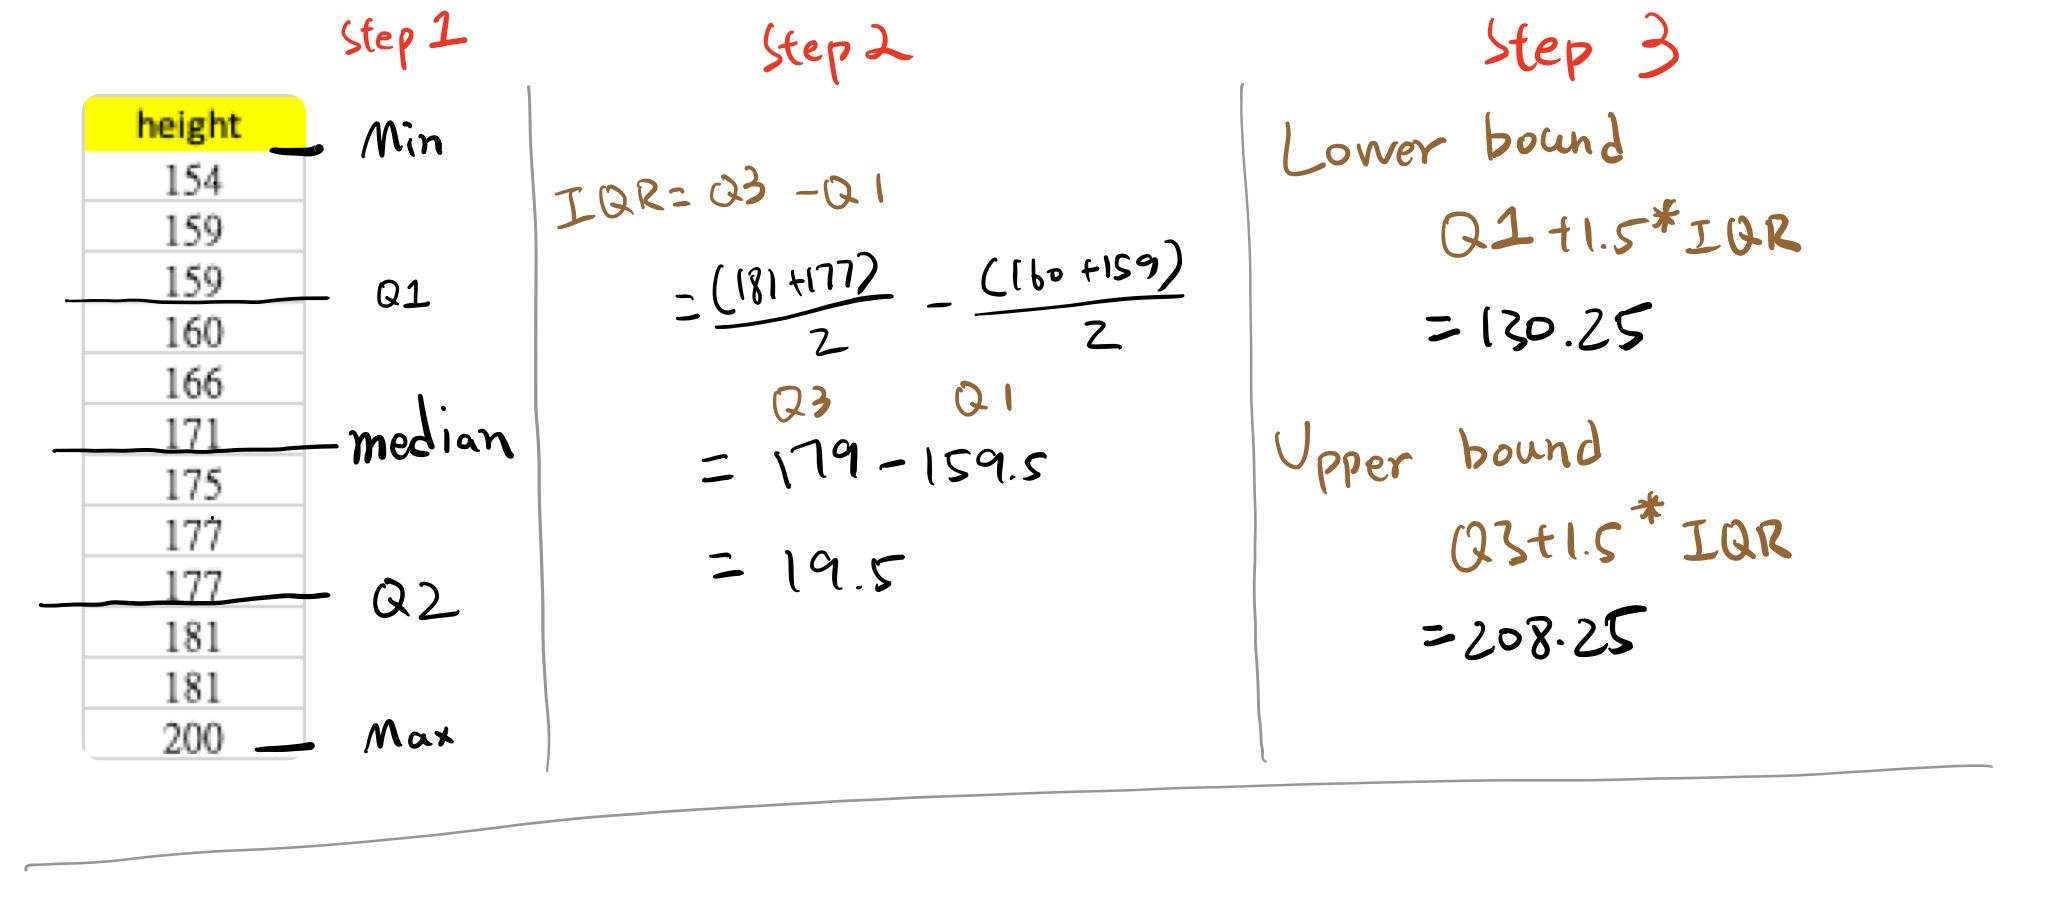 Step 1
height
Min
154
159
159
Q1
160
166
171
median
175
177
177
Q2
181
181
200
Max
Step 2
IQR = Q3 - Q1
= (181+177)/2 - (160+159)/2
Q3 Q1
= 179 - 159.5
= 19.5
Step 3
Lower bound
Q1 +1.5* IQR
= 130.25
Upper bound
Q3+1.5* IQR
= 208.25